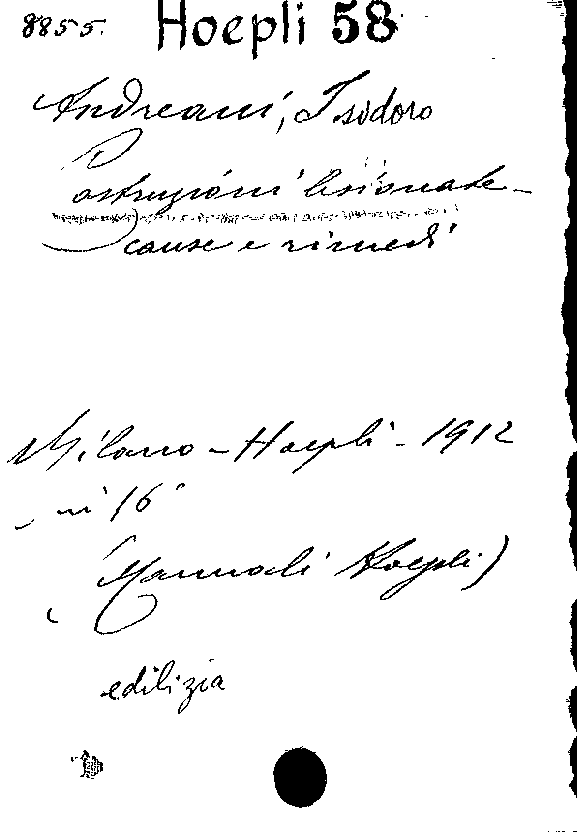 8855. Hoepli 58
Andreani, Isodoro
Costruzioni lesionate -
cause e rimedi
Milano - Hoepli - 1912
- in 16°
(Manuali Hoepli)
edilizia